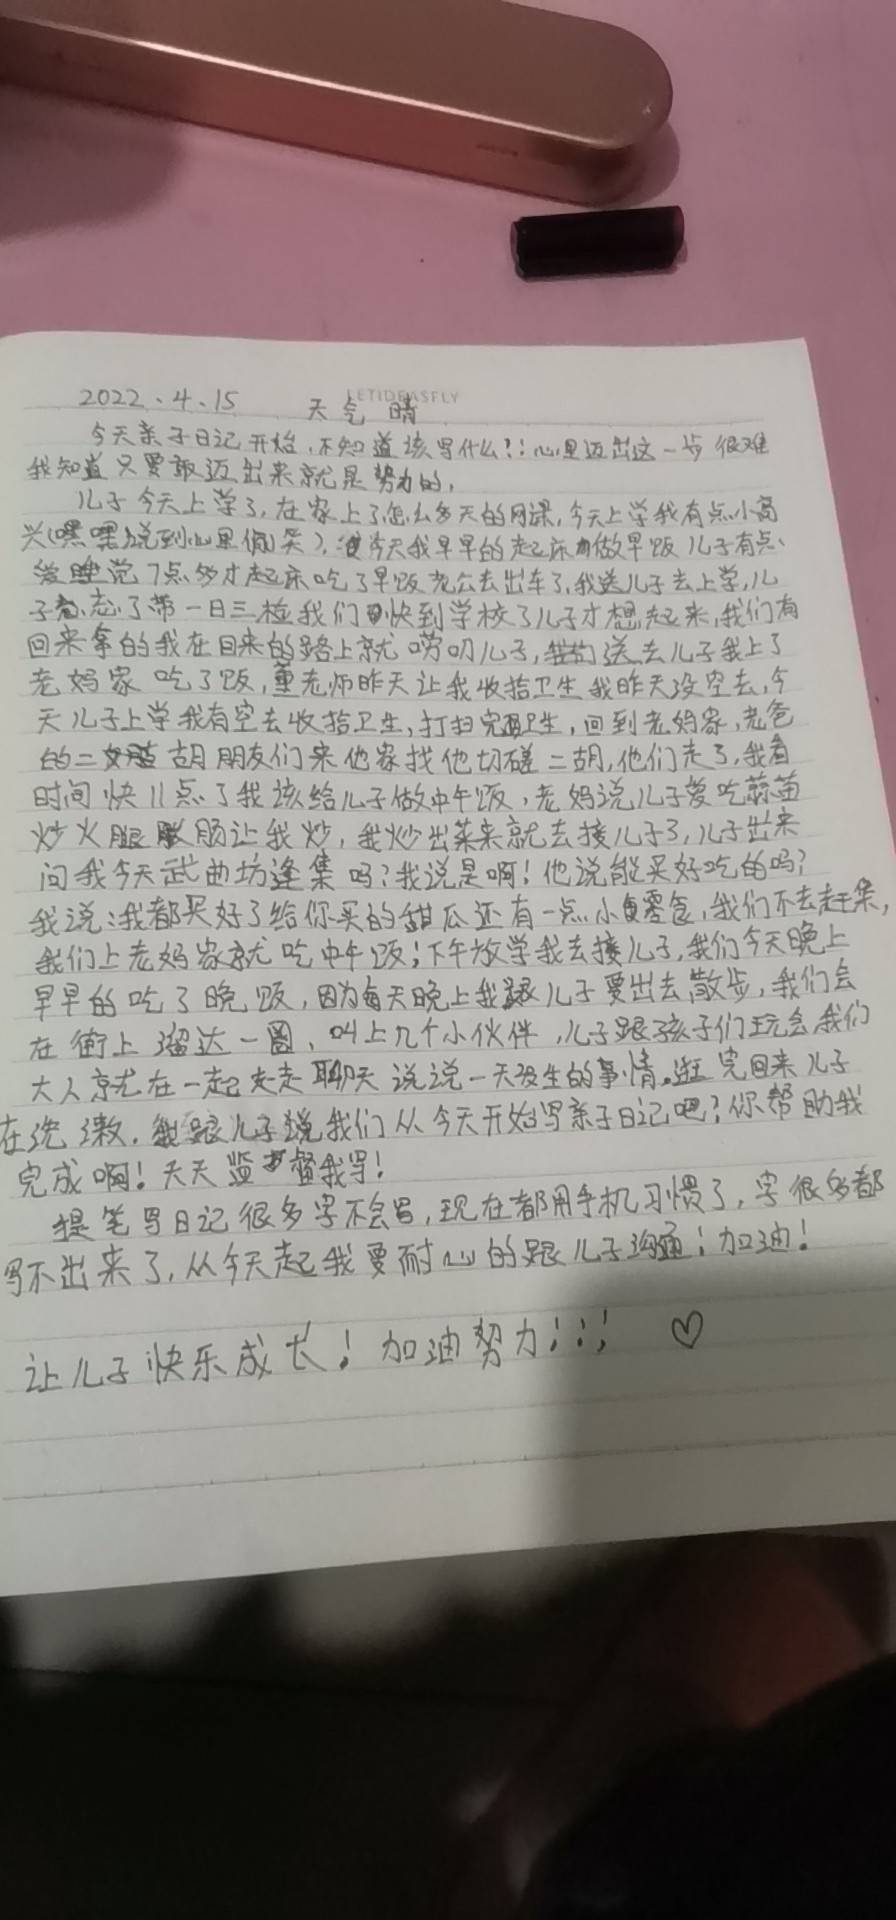 LETIDEASFLY
2022、4、15 天气 晴
今天亲子日记开始,不知道该写什么?!心里迈出这一步很难
我知道只要敢迈出来就是努力的,
儿子今天上学了,在家上了怎么多天的网课,今天上学我有点小高
兴(嘿嘿说到心里偷笑),今天我早早的起床做早饭儿子有点
爱睡觉7点多才起床吃了早饭老公去出车了,我送儿子去上学,儿
子忘了带一日三检我们快到学校了儿子才想起来,我们有
回来拿的我在回来的路上就唠叨儿子,送去儿子我上了
老妈家吃了饭,董老师昨天让我收拾卫生我昨天没空去,今
天儿子上学我有空去收拾卫生,打扫完卫生,回到老妈家,老爸
的二胡朋友们来他家找他切磋二胡,他们走了,我看
时间快11点了我该给儿子做中午饭,老妈说儿子爱吃蒜苗
炒火腿肠让我炒,我炒出菜来就去接儿子了,儿子出来
问我今天武曲坊逢集吗?我说是啊!他说能买好吃的吗?
我说:我都买好了给你买的甜瓜还有一点小零食,我们不去赶集,
我们上老妈家就吃中午饭;下午放学我去接儿子,我们今天晚上
早早的吃了晚饭,因为每天晚上我跟儿子要出去散步,我们会
在街上溜达一圈,叫上几个小伙伴,儿子跟孩子们玩会,我们
大人就在一起走走聊天说说一天发生的事情。逛完回来儿子
在洗漱,我跟儿子说我们从今天开始写亲子日记吧?你帮助我
完成啊!天天监督我写!
提笔写日记很多字不会写,现在都用手机习惯了,字很多都
写不出来了,从今天起我要耐心的跟儿子沟通!加油!
让儿子快乐成长!加油努力!!! ♡